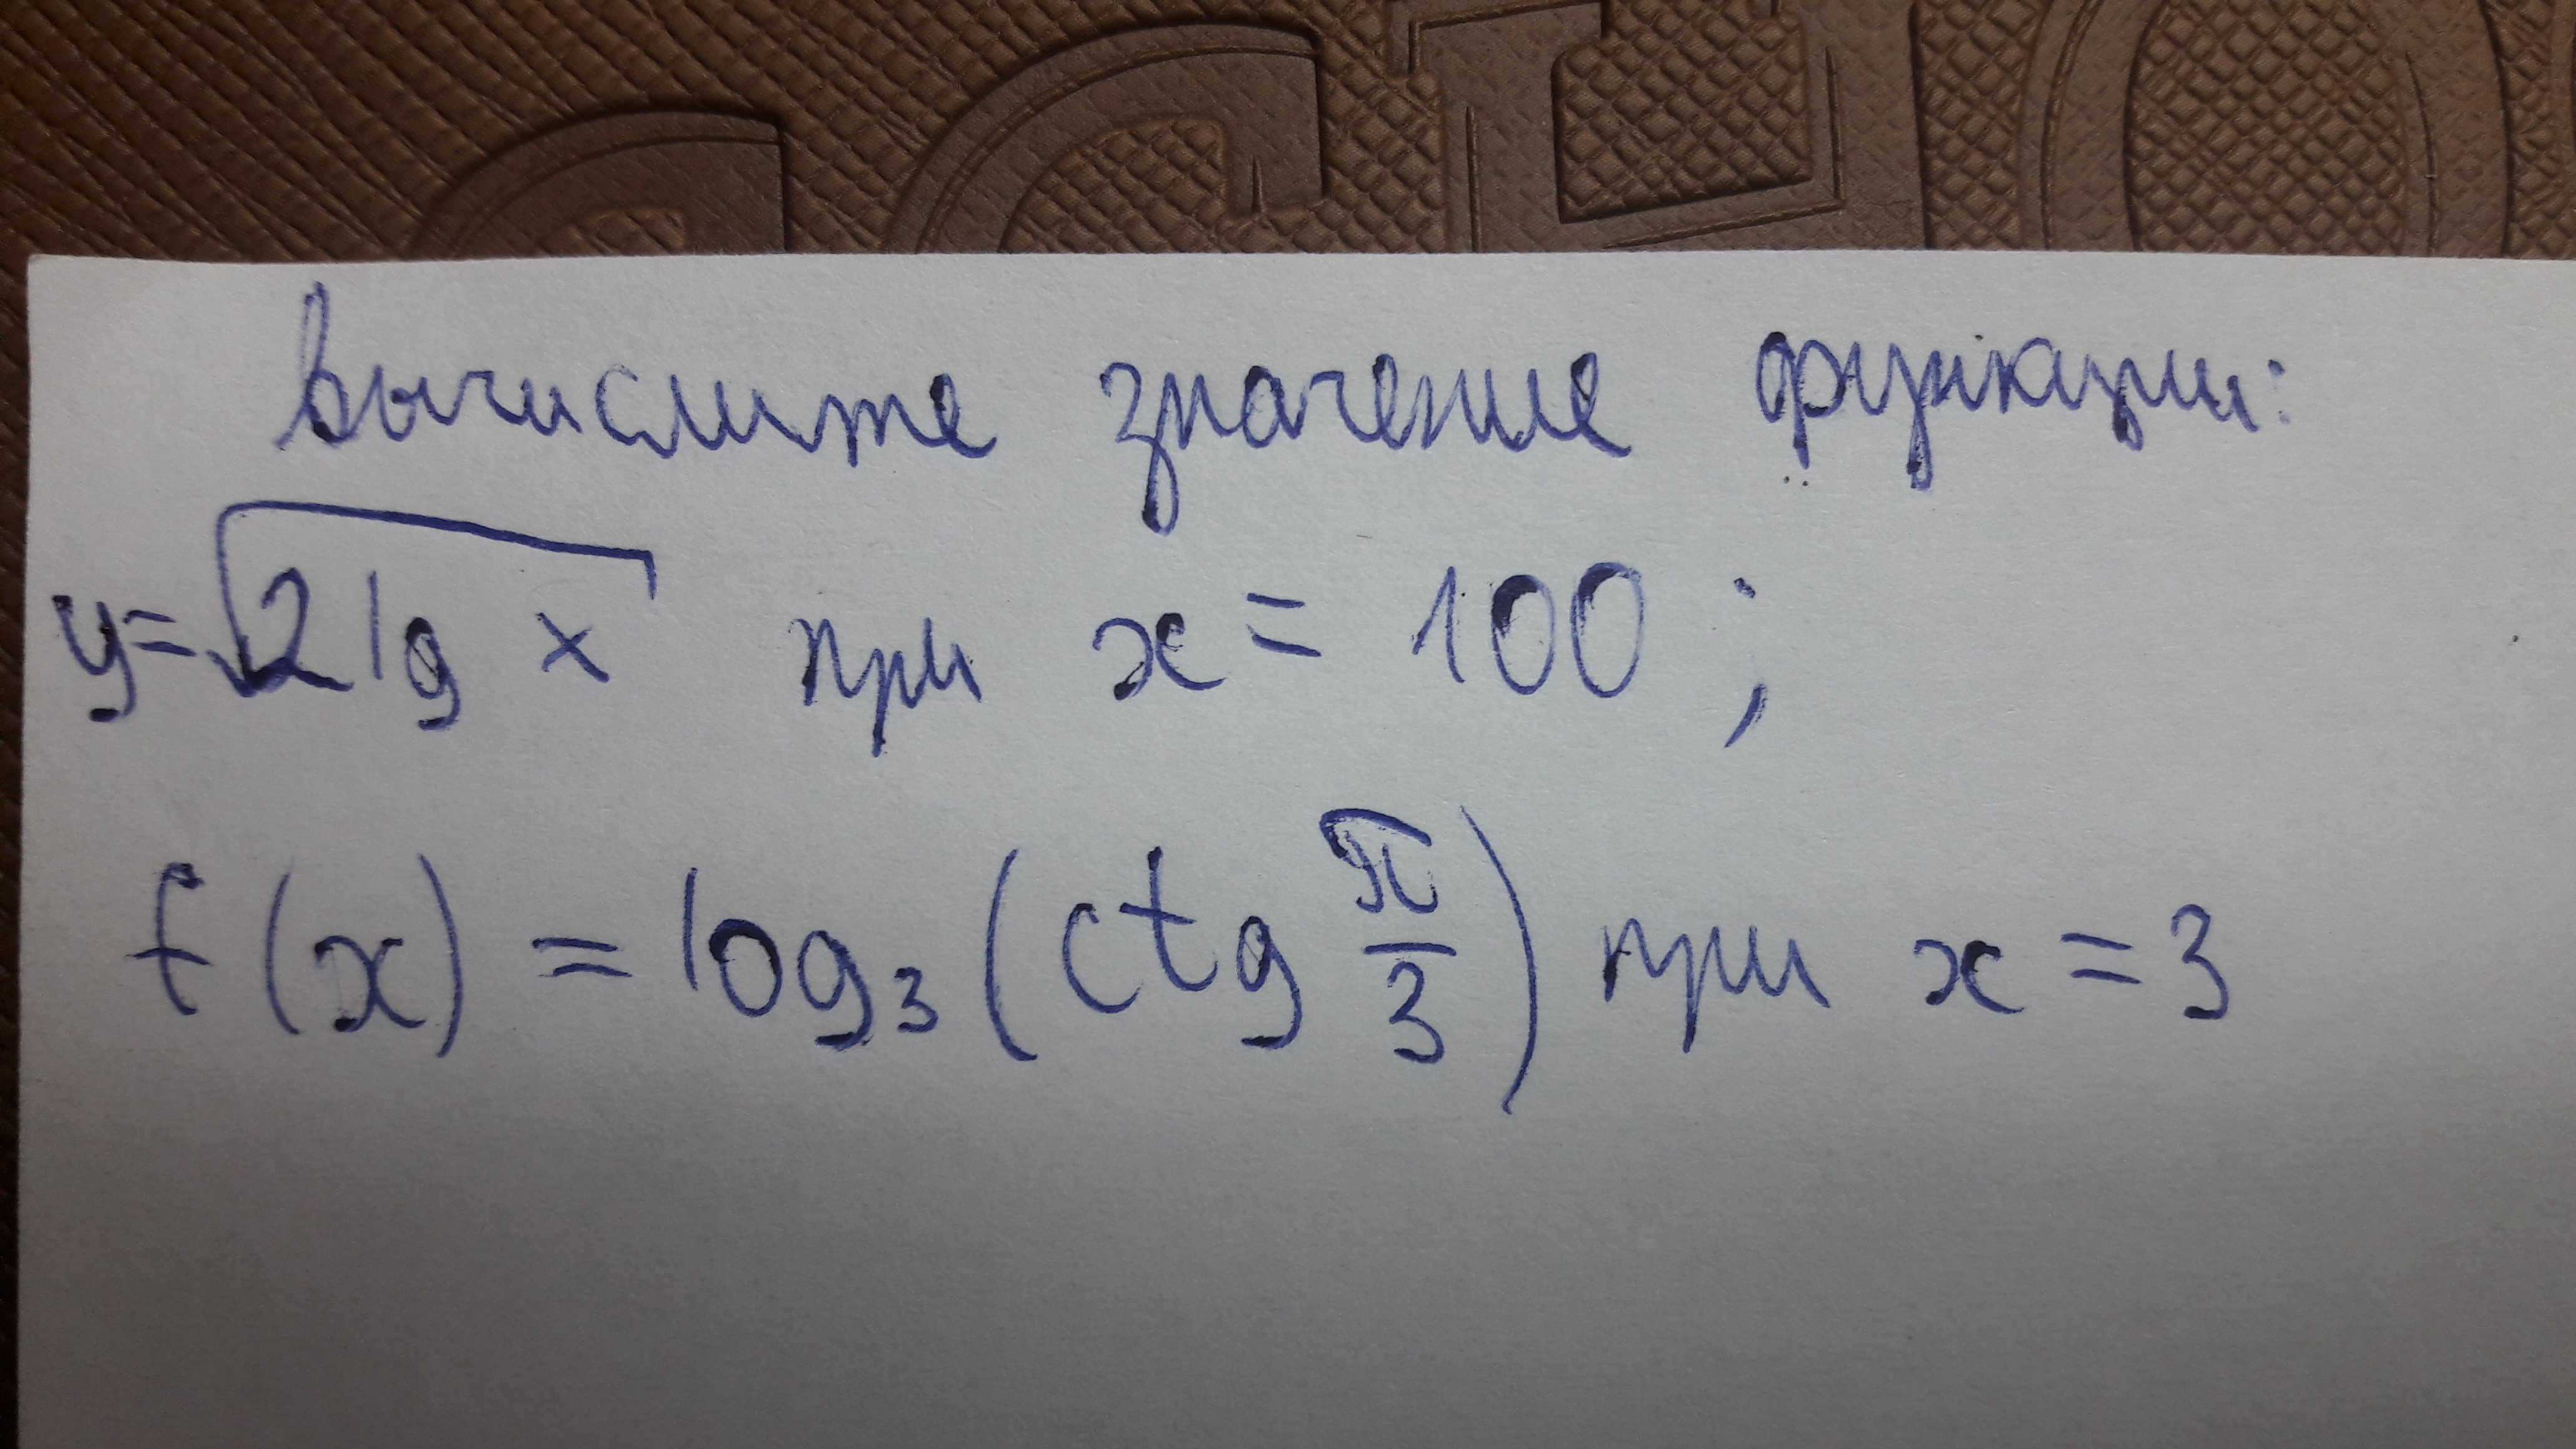 Вычислите значение функции:
y = √(2 lg x) при x = 100 ;
f(x) = log₃ (ctg π/3) при x = 3